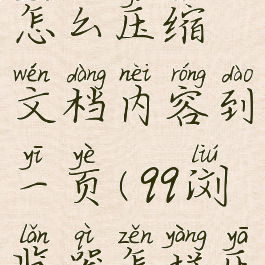 怎么压缩
wén dàng nèi róng dào
文档内容到
yī yè liú
一页(99浏
lǎn qì zěn yàng yā
览器怎样压